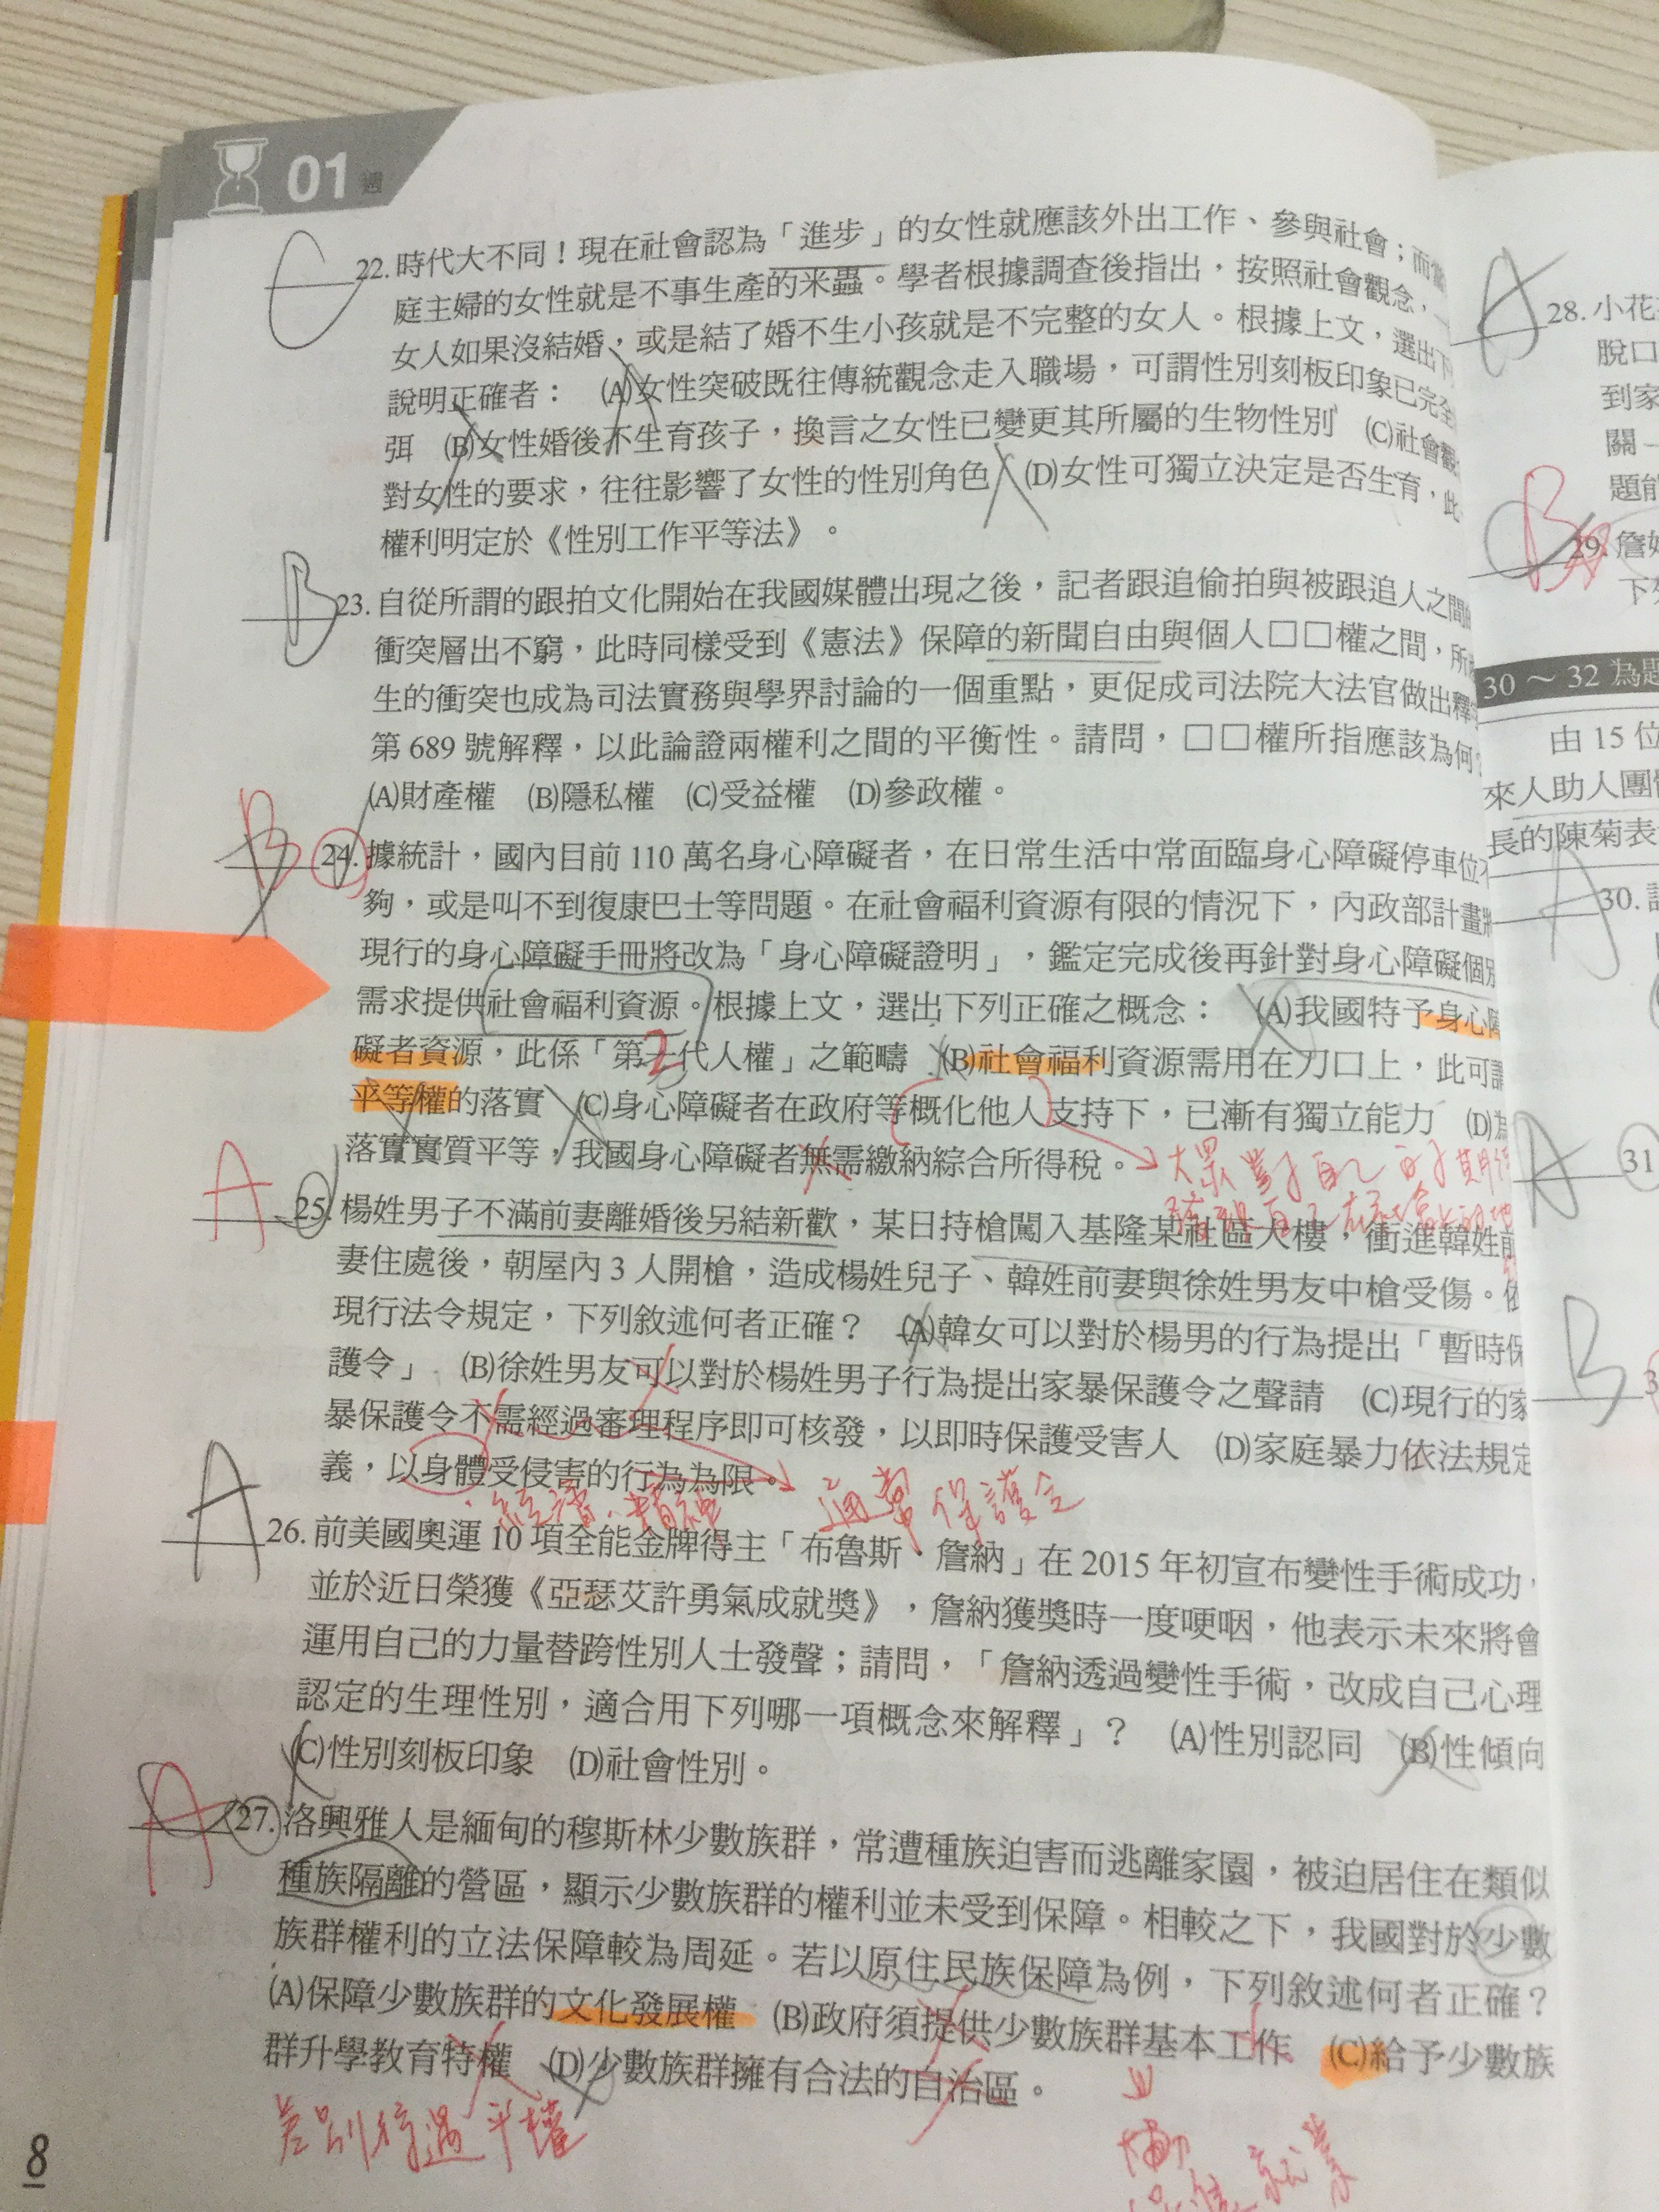 01 週
C
22. 時代大不同！現在社會認為「進步」的女性就應該外出工作、參與社會；而
庭主婦的女性就是不事生產的米蟲。學者根據調查後指出，按照社會觀念，
女人如果沒結婚，或是結了婚不生小孩就是不完整的女人。根據上文，選出下
說明正確者： (A)女性突破既往傳統觀念走入職場，可謂性別刻板印象已完全
弭 (B)女性婚後不生育孩子，換言之女性已變更其所屬的生物性別 (C)社會觀
對女性的要求，往往影響了女性的性別角色 (D)女性可獨立決定是否生育，此
權利明定於《性別工作平等法》。
B
23. 自從所謂的跟拍文化開始在我國媒體出現之後，記者跟追偷拍與被跟追人之間
衝突層出不窮，此時同樣受到《憲法》保障的新聞自由與個人□□權之間，所
生的衝突也成為司法實務與學界討論的一個重點，更促成司法院大法官做出釋
第 689 號解釋，以此論證兩權利之間的平衡性。請問，□□權所指應該為何
(A)財產權 (B)隱私權 (C)受益權 (D)參政權。
B
24. 據統計，國內目前 110 萬名身心障礙者，在日常生活中常面臨身心障礙停車位不
夠，或是叫不到復康巴士等問題。在社會福利資源有限的情況下，內政部計畫將
現行的身心障礙手冊將改為「身心障礙證明」，鑑定完成後再針對身心障礙個別
需求提供社會福利資源。根據上文，選出下列正確之概念： (A)我國特予身心障
礙者資源，此係「第一代人權」之範疇 (B)社會福利資源需用在刀口上，此可謂
2
平等權的落實 (C)身心障礙者在政府等概化他人支持下，已漸有獨立能力 (D)為
落實實質平等，我國身心障礙者無需繳納綜合所得稅。
大眾對自己的期待
A
25. 楊姓男子不滿前妻離婚後另結新歡，某日持槍闖入基隆某社區大樓，衝進韓姓前
妻住處後，朝屋內 3 人開槍，造成楊姓兒子、韓姓前妻與徐姓男友中槍受傷。依
現行法令規定，下列敘述何者正確？ (A)韓女可以對於楊男的行為提出「暫時保
護令」 (B)徐姓男友可以對於楊姓男子行為提出家暴保護令之聲請 (C)現行的家
暴保護令不需經過審理程序即可核發，以即時保護受害人 (D)家庭暴力依法規定
義，以身體受侵害的行為為限。
經濟、精神
通常保護令
A
26. 前美國奧運 10 項全能金牌得主「布魯斯．詹納」在 2015 年初宣布變性手術成功，
並於近日榮獲《亞瑟艾許勇氣成就獎》，詹納獲獎時一度哽咽，他表示未來將會
運用自己的力量替跨性別人士發聲；請問，「詹納透過變性手術，改成自己心理
認定的生理性別，適合用下列哪一項概念來解釋」？ (A)性別認同 (B)性傾向
(C)性別刻板印象 (D)社會性別。
A
27. 洛興雅人是緬甸的穆斯林少數族群，常遭種族迫害而逃離家園，被迫居住在類似
種族隔離的營區，顯示少數族群的權利並未受到保障。相較之下，我國對於少數
族群權利的立法保障較為周延。若以原住民族保障為例，下列敘述何者正確？
(A)保障少數族群的文化發展權 (B)政府須提供少數族群基本工作 (C)給予少數族
群升學教育特權 (D)少數族群擁有合法的自治區。
差別待遇 平權
就業
8
A
28. 小花
脫口
到家
關一
題能
B
29. 詹
下列
30 ～ 32 為題
由 15 位
來人助人團體
長的陳菊表
A
30.
A
31
B
3